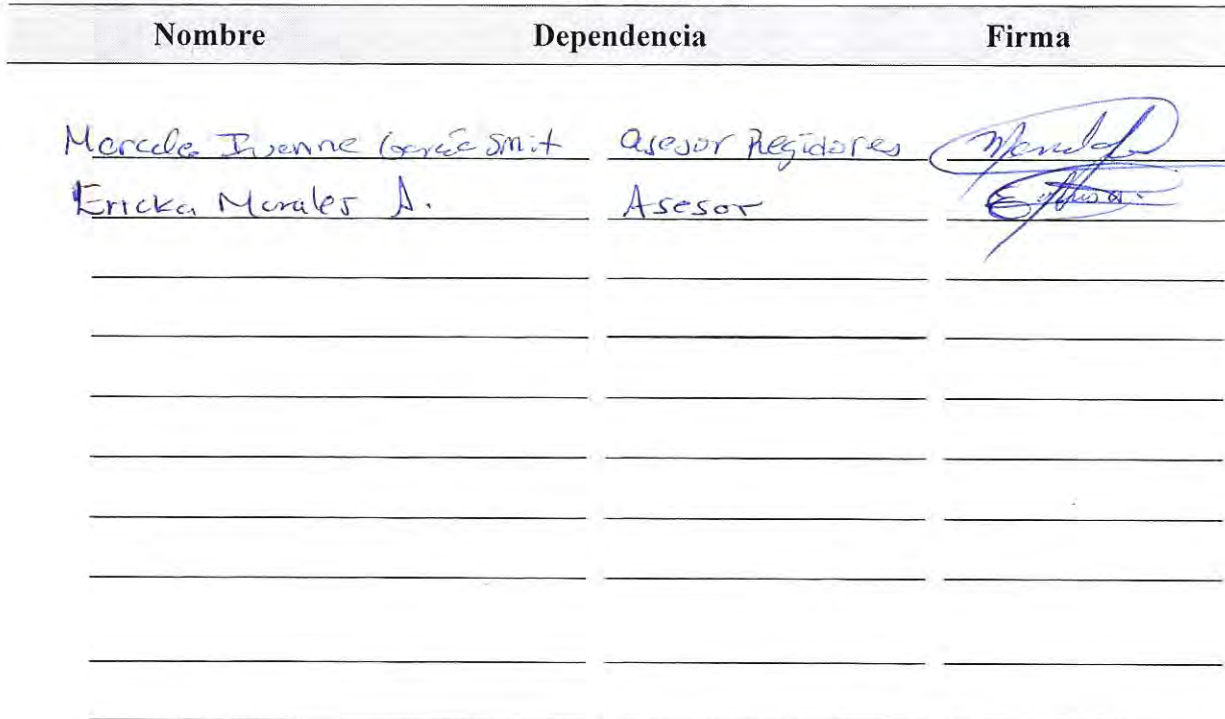 Nombre Dependencia Firma
Ivonne García Smit Asesor Regidores
Ericka Morales A. Asesor